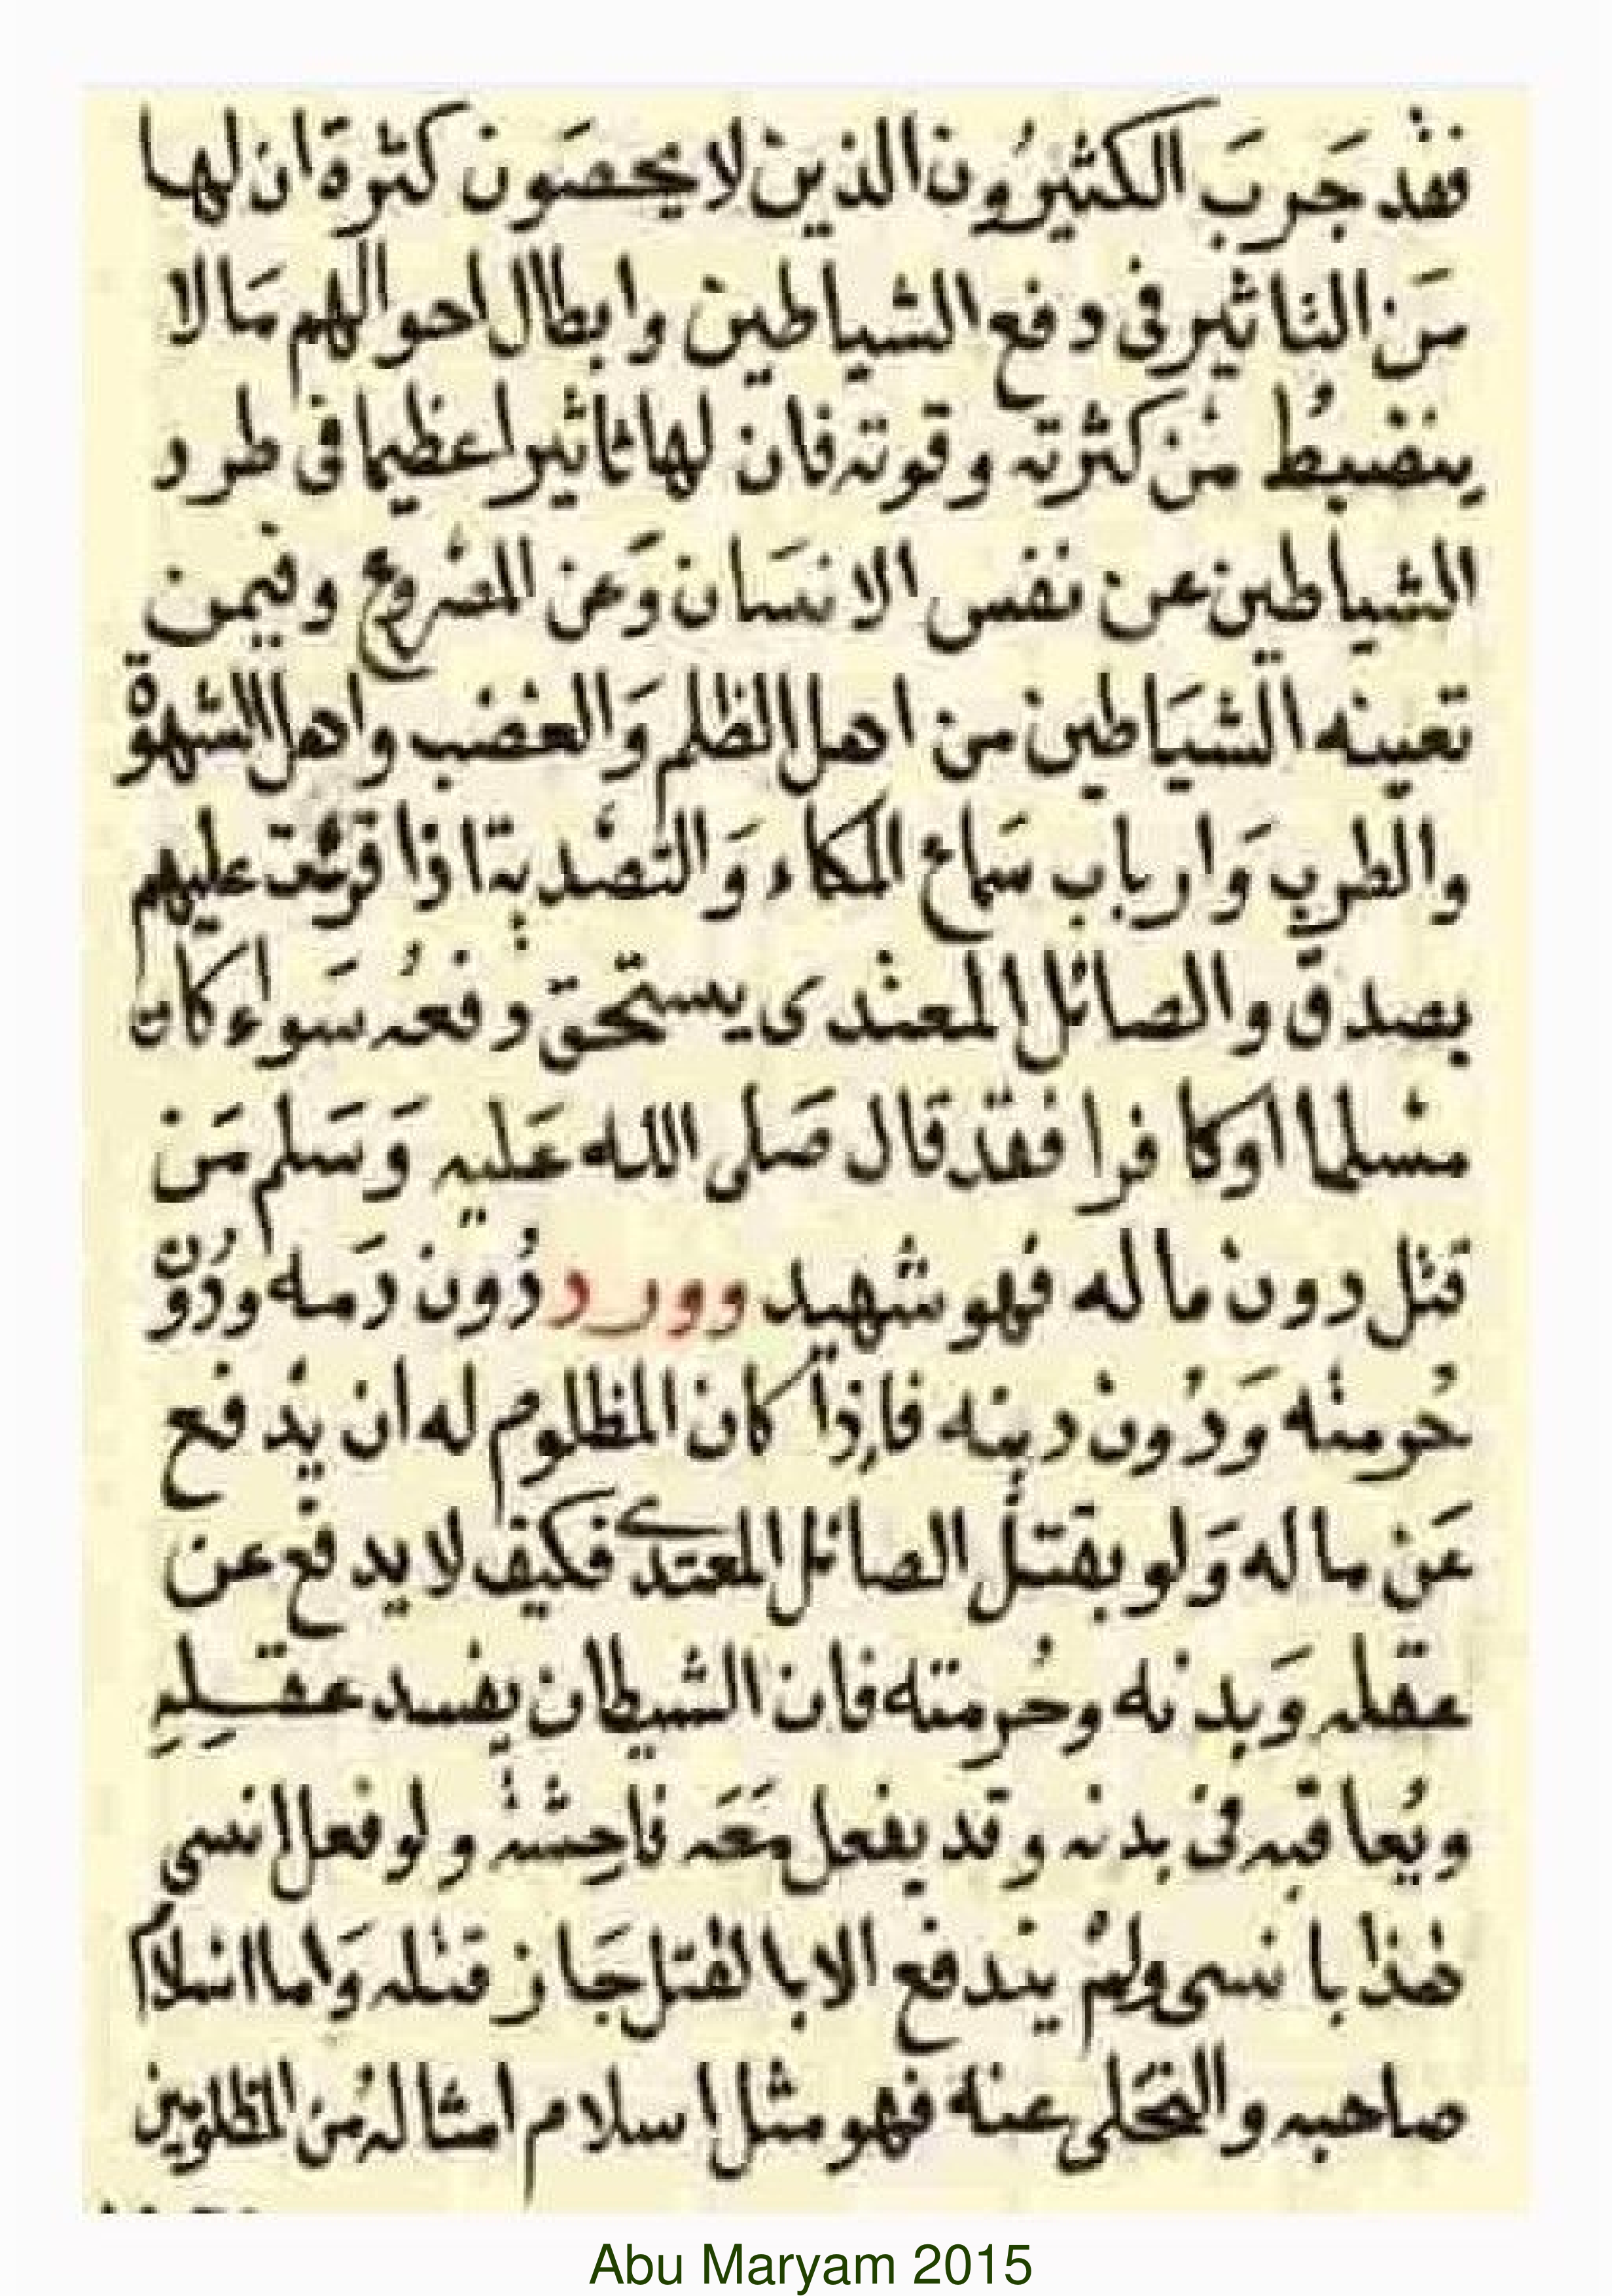 فقد جَربَ الكثيرُون الذين لا يحصَون كثرة ان لها
مَن التاثير فى دفع الشياطين وابطال احوالهم مَا لا
ينضبُط مَن كثرته وقوته فان لها تاثيرا عظيما فى طرد
الشياطين عن نفس الانسَان وَعن المصروع وفيمن
تعينه الشيَاطين من اهل الظلم وَالغضب واهل الشهوة
والطرب وَارباب سَماع المكاء وَالتصدية اذا قرئت عليهم
بصدق والصائل المعتدى يستحق دفعهُ سَواء كان
مسلما او كافرا فقد قال صَلى الله عَليه وَسَلم مَن
قتل دون ماله فهو شهيد وورد دُون دَمه ودُون
حُرمته وَدُون دينه فإذا كان المظلوم له ان يدفع
عَن ماله وَلو بقتل الصائل المعتدى فكيف لا يدفع عن
عقله وَبدنه وحُرمته فان الشيطان يفسد عقلِهِ
ويُعاقبه فى بدنه وقد يفعل مَعَه فاحِشة ولو فعل انسى
هذا بانسى ولم يندفع الا بالقتل جَاز قتله وَاما اسلام
صاحبه والتخَلى عنه فهو مثل اسلام امثالهُ من المظلومين
Abu Maryam 2015